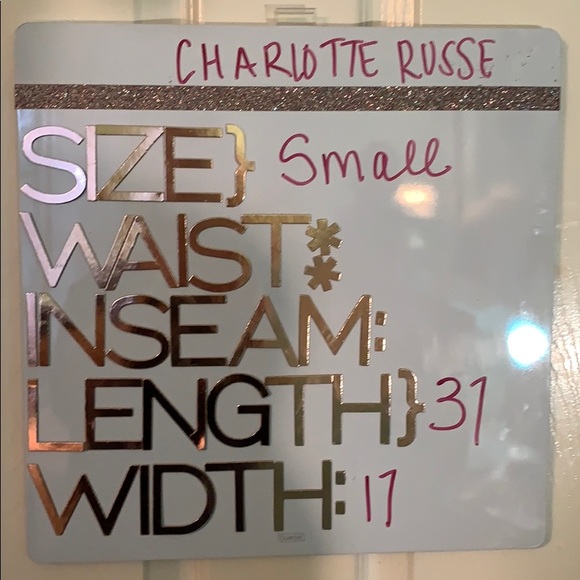 CHARLOTTE RUSSE
SIZE} Small
WAIST:
INSEAM:
LENGTH} 37
WIDTH: 17